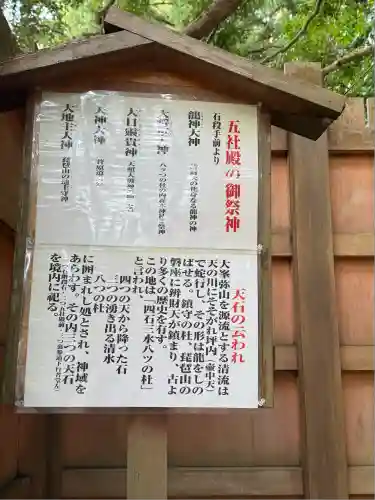 五社殿の御祭神
石段手前より
龍神大神
大日孁貴神
天神大神
菅原道
大地主大神
琵琶山の地主守神
天石の云われ
大峯弥山を源流とする清流は
天の川にてさえぎれ坪内（壷中天）
で蛇行し、その形は龍をしの
ばせる。鎮守の杜、琵琶山の
磐座に辨財天が鎮まり、古よ
り多くの歴史を有す。
この地は、「四石三水八ツの杜」
と言われ
四つの天から降った石
三つの湧き出る清水
八つの杜
に囲まれし処とされ、神域を
あらわす。その内三つの天石
を境内に祀る。